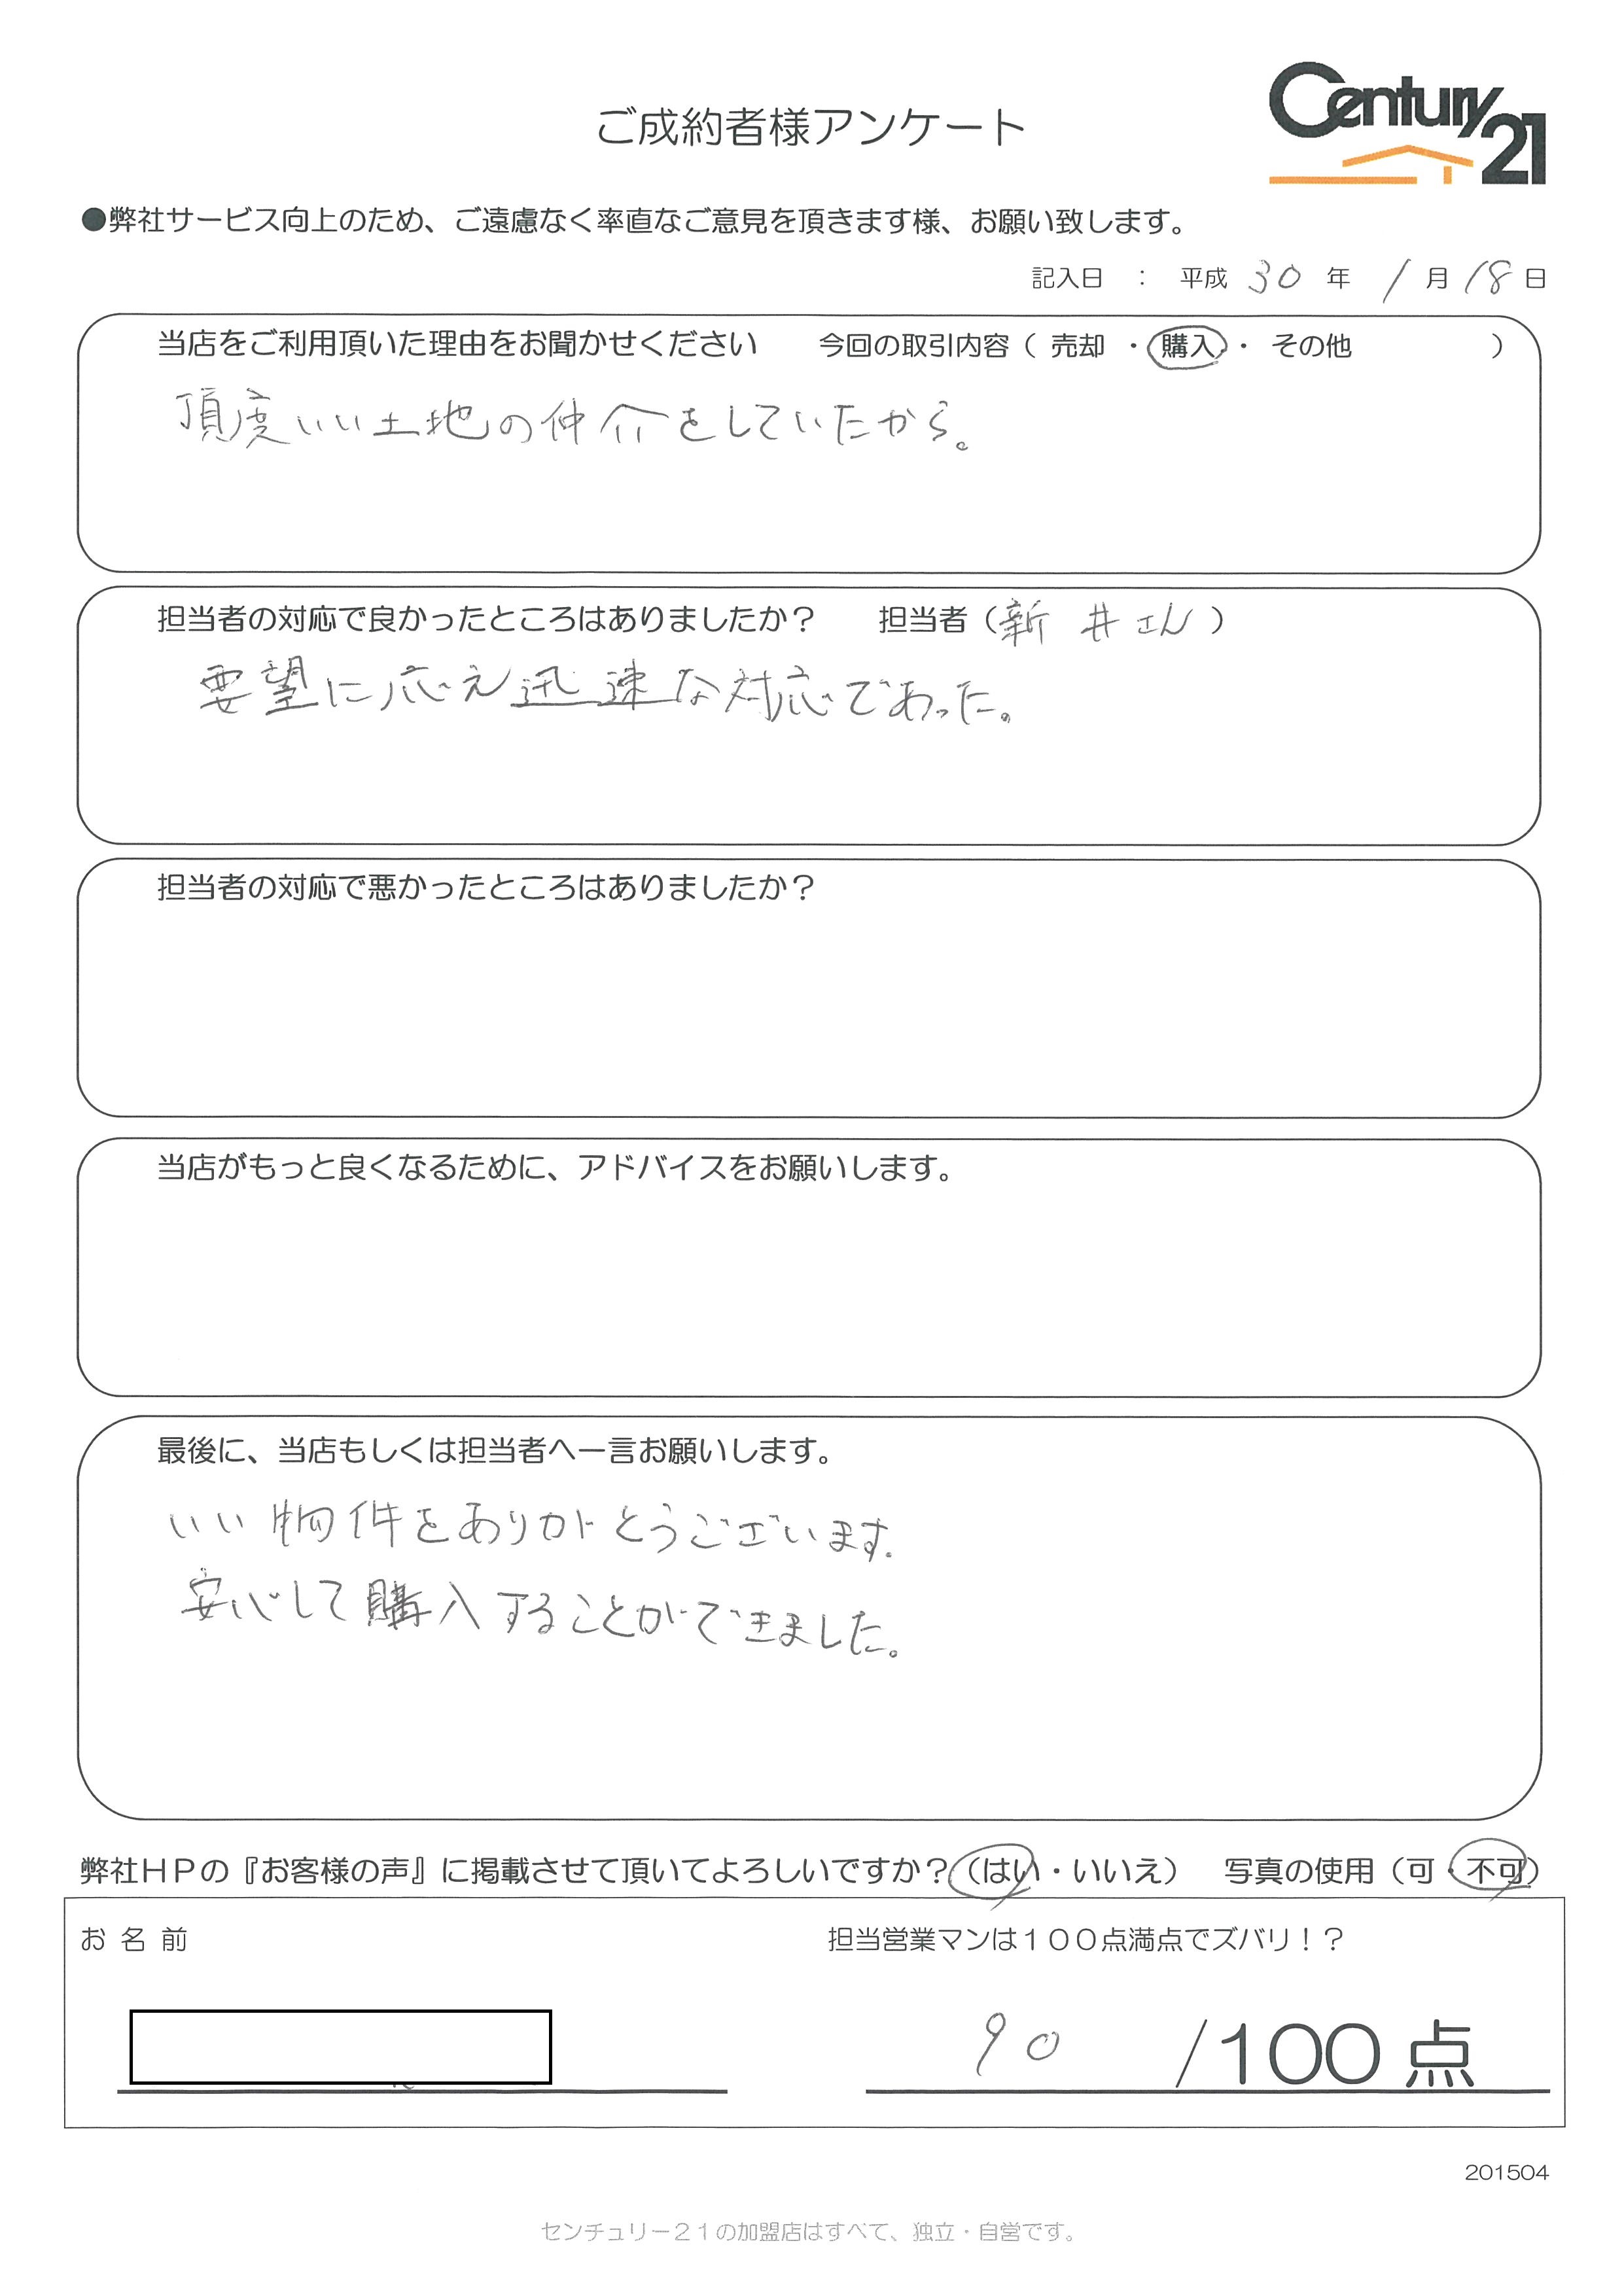 ご成約者様アンケート
Century 21
●弊社サービス向上のため、ご遠慮なく率直なご意見を頂きます様、お願い致します。
記入日 ： 平成 30 年 1 月 18 日
当店をご利用頂いた理由をお聞かせください 今回の取引内容（ 売却 ・ 購入 ・ その他 ）
頂度いい土地の仲介をしていたから。
担当者の対応で良かったところはありましたか？ 担当者（新井さん）
要望に応え迅速な対応であった。
担当者の対応で悪かったところはありましたか？
当店がもっと良くなるために、アドバイスをお願いします。
最後に、当店もしくは担当者へ一言お願いします。
いい物件をありがとうございます.
安心して購入することができました。
弊社ＨＰの『お客様の声』に掲載させて頂いてよろしいですか？（はい・いいえ） 写真の使用（可・不可）
お 名 前
担当営業マンは１００点満点でズバリ！？
90 /100 点
201504
センチュリー２１の加盟店はすべて、独立・自営です。